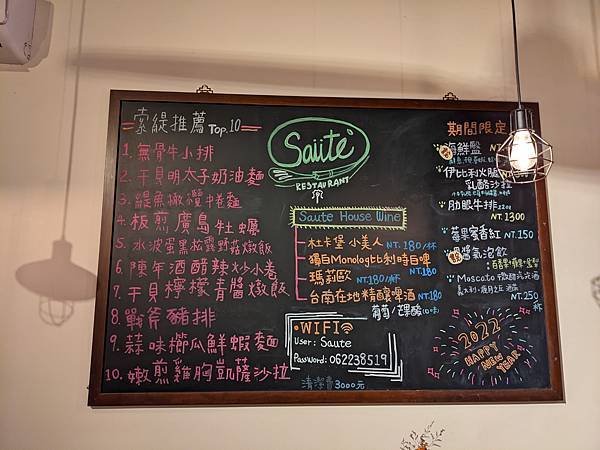 索緹推薦 Top.10
1. 無骨牛小排
2. 干貝明太子奶油麵
3. 鯷魚橄欖中卷麵
4. 板煎廣島牡蠣
5. 水波蛋黑松露野菇燉飯
6. 陳年酒醋辣炒小卷
7. 干貝檸檬青醬燉飯
8. 戰斧豬排
9. 蒜味櫛瓜鮮蝦麵
10. 嫩煎雞胸凱薩沙拉
Saüte
RESTAURANT
Saute House Wine
杜卡堡 小美人 NT.180/杯
獨白Monolog比利時白啤 NT.180
瑪莉歐 NT.180/杯
台南在地精釀啤酒 NT.180
葡萄/芒果酸
WIFI
User: Saute
Password: 062238519
清潔費3000元
期間限定
海鮮盤
伊比利火腿
乳酪沙拉
肋眼牛排 22oz
NT.1300
莓果蜜香紅 NT.150
氣泡飲
Moscato 微甜氣泡酒
NT.250
杯
2022
HAPPY
NEW
YEAR